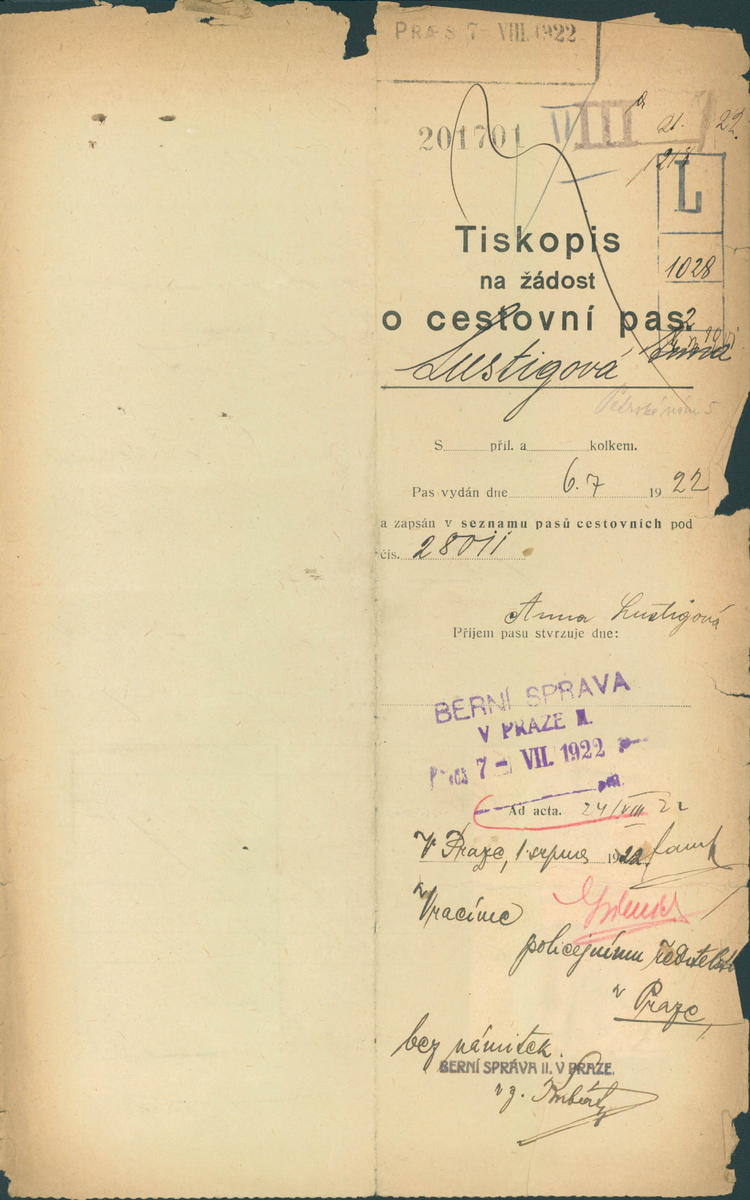 PRÆS 7- VIII. 1922
201701 VIII
21. 22.
L
1028
2
Tiskopis
na žádost
o cestovní pas.
Lustigová
Petrské nám 5
S ........ příl. a ........ kolkem.
Pas vydán dne 6. 7 1922
a zapsán v seznamu pasů cestovních pod
čís. 28011
Anna Lustigová
Příjem pasu stvrzuje dne:
BERNÍ SPRÁVA
V PRAZE II.
Præs 7- VII. 1922
Ad acta. 24/VIII 22
V Praze, 1 srpna 1922.
Vracíme
policejnímu ředitelství
v Praze,
bez námitek.
BERNÍ SPRÁVA II. V PRAZE.
v z.